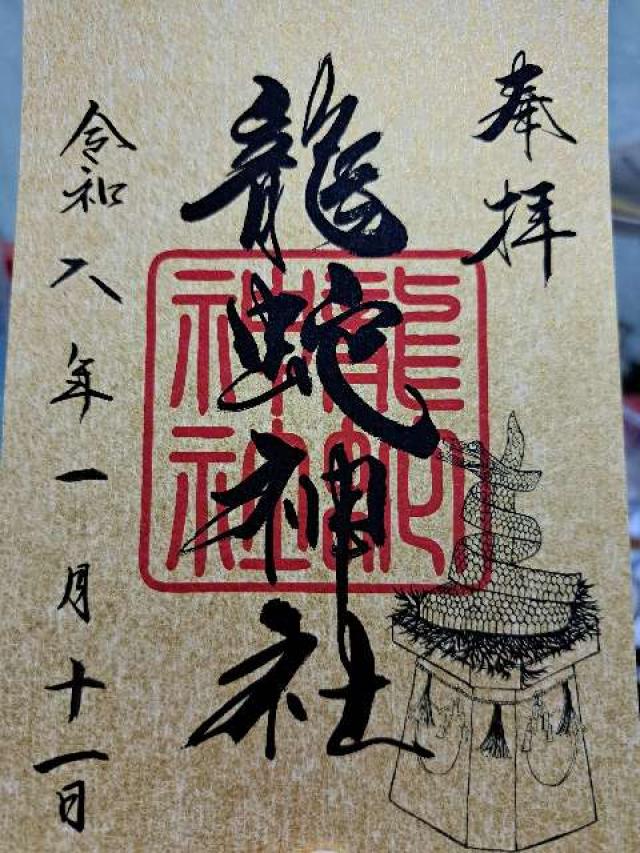 奉拝
龍蛇神社
龍蛇
神社
令和八年一月十一日